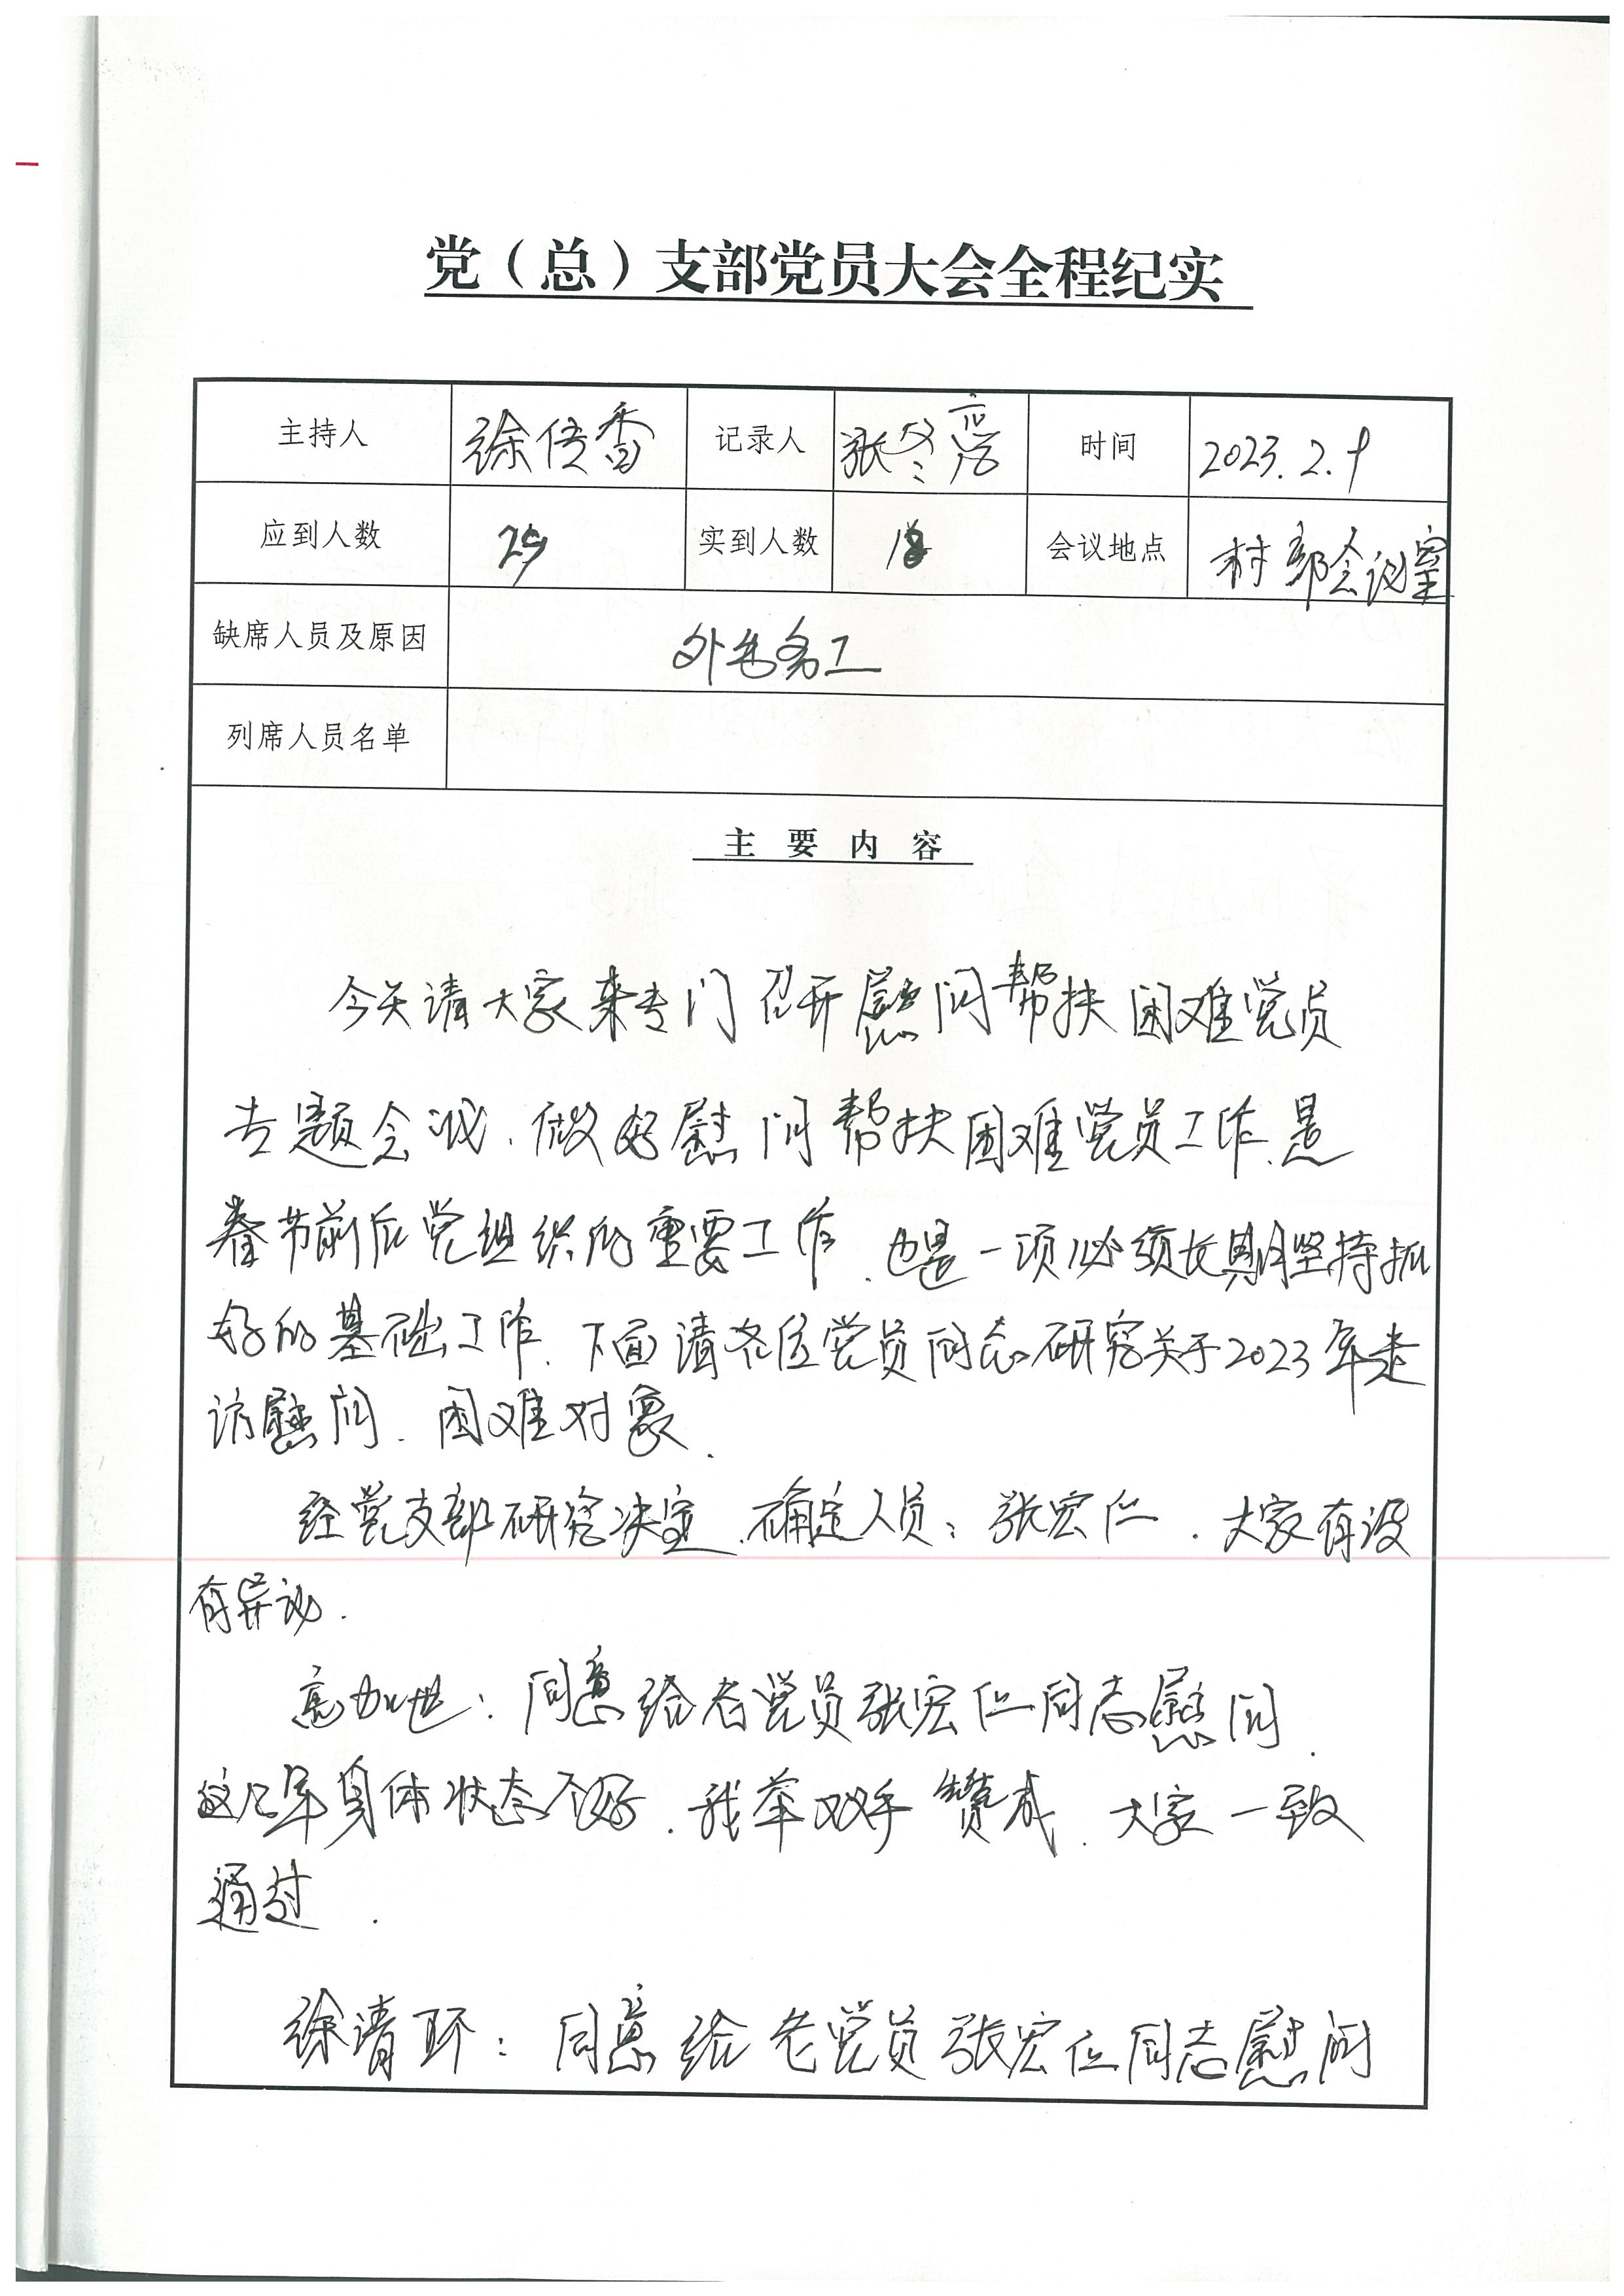 党（总）支部党员大会全程纪实
主持人 徐传香 记录人 张冬 时间 2023.2.9
应到人数 29 实到人数 18 会议地点 村部会议室
缺席人员及原因 外出务工
列席人员名单
主要内容
今天请大家来专门召开慰问帮扶困难党员
专题会议.做好慰问帮扶困难党员工作.是
春节前后党组织的重要工作.也是一项必须长期坚持抓
好的基础工作.下面请各位党员同志研究关于2023年走
访慰问.困难对象.
经党支部研究决定.确定人员:张宏仁.大家有没
有异议.
高加世:同意给老党员张宏仁同志慰问.
这几年身体状态不好.我举双手赞成.大家一致
通过.
徐清环:同意给老党员张宏仁同志慰问